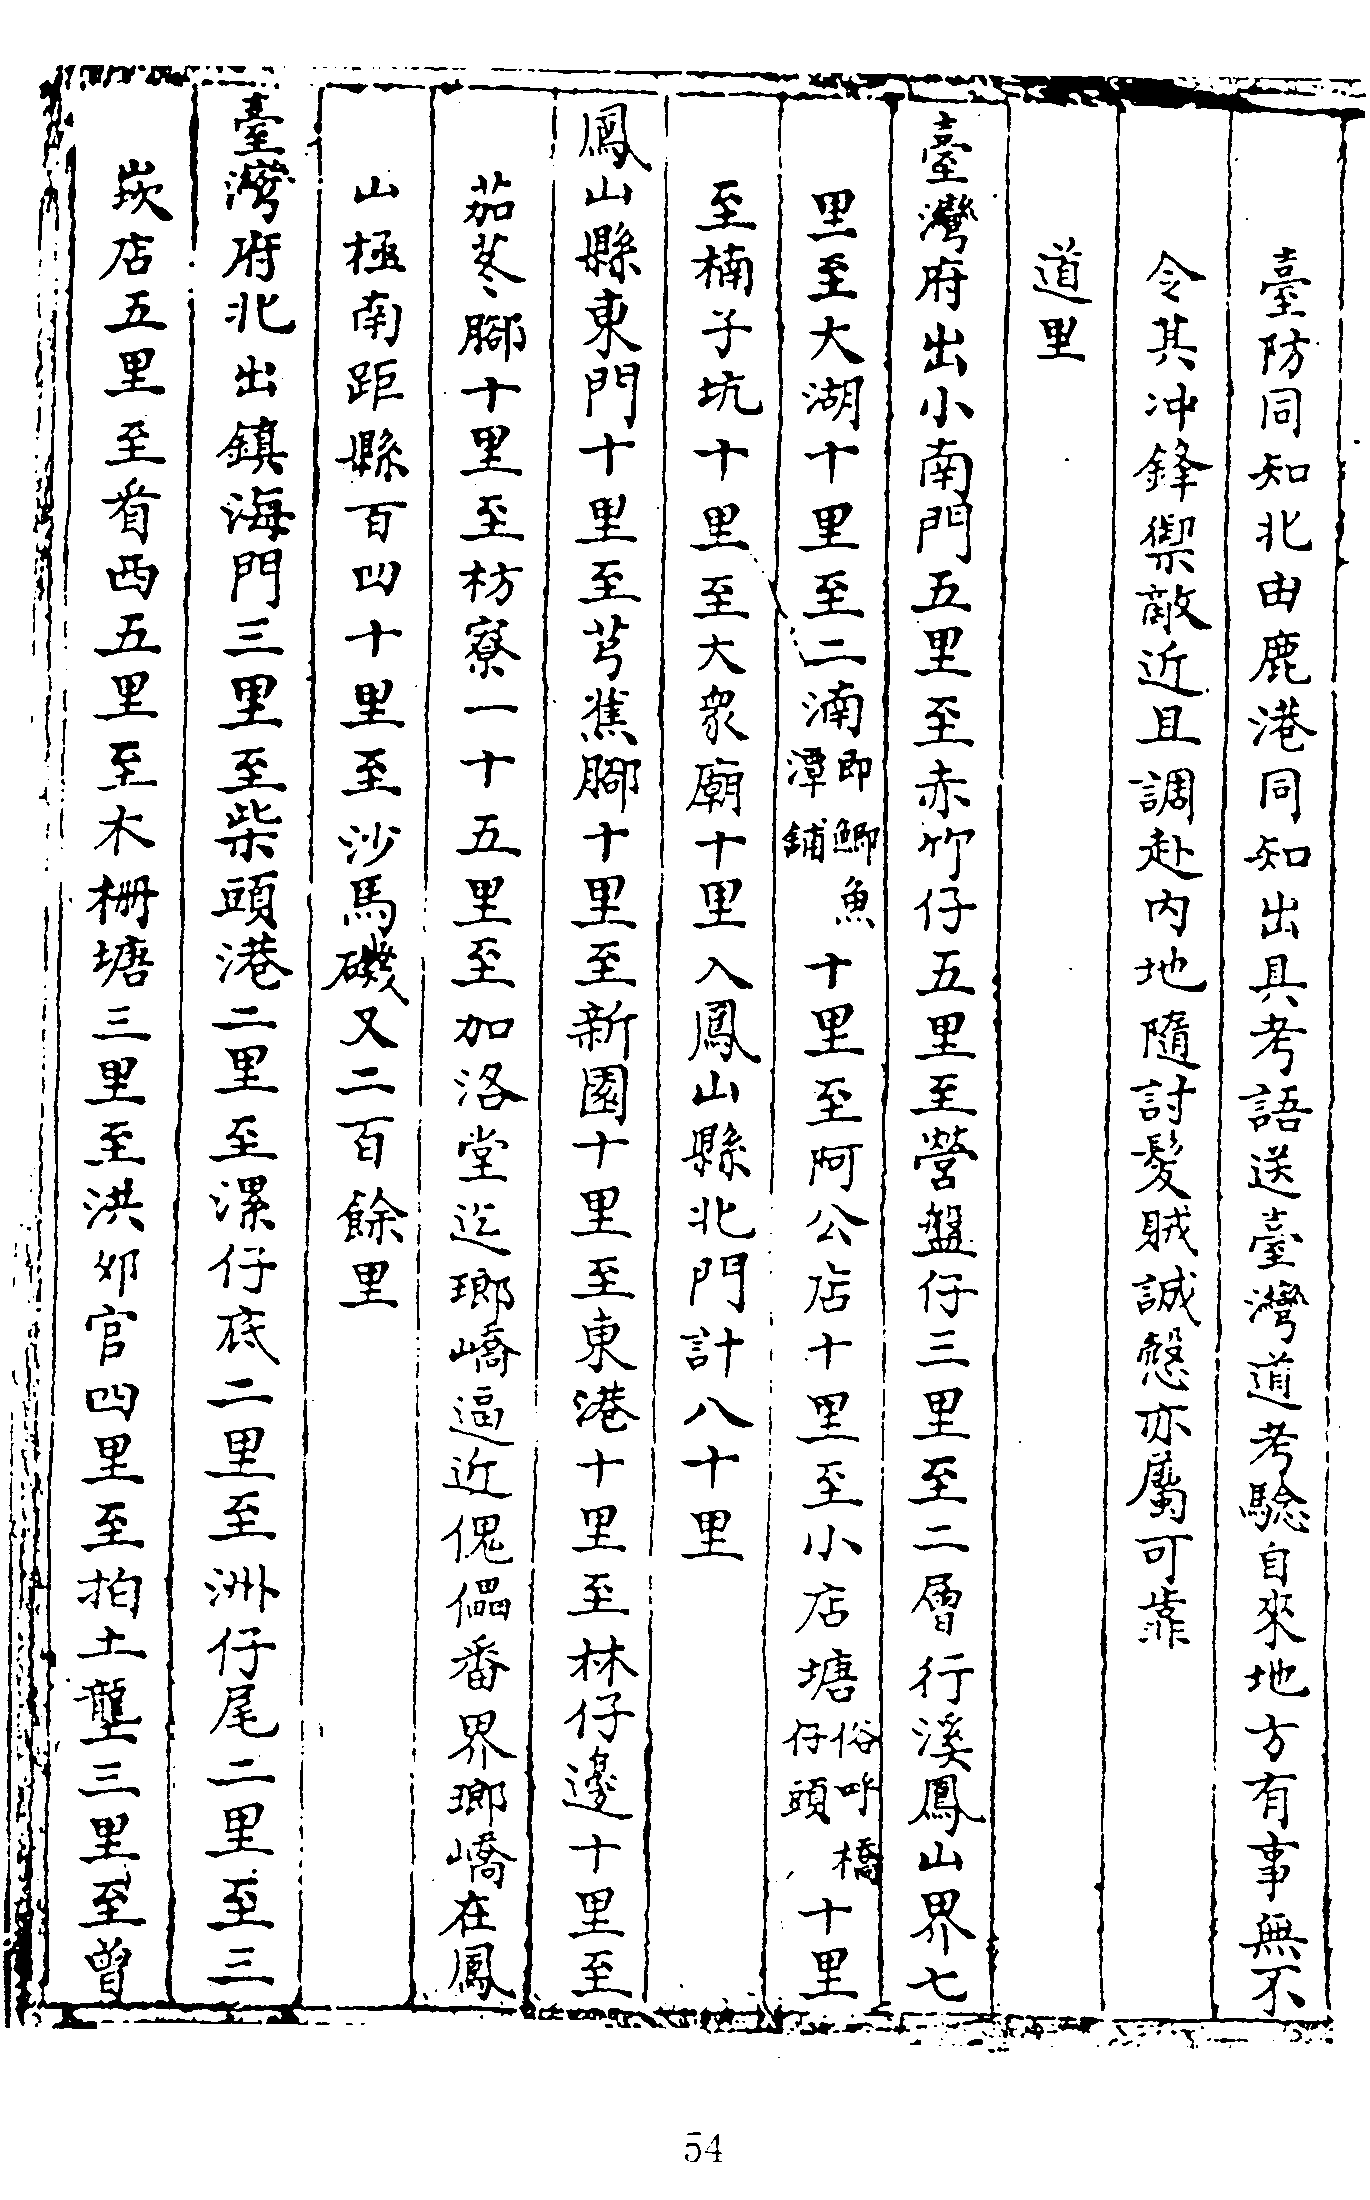 臺防同知北由鹿港同知出具考語送臺灣道考驗自來地方有事無不
令其冲鋒禦敵近且調赴內地隨討髮賊誠慤亦屬可靠
道里
臺灣府出小南門五里至赤竹仔五里至營盤仔三里至二層行溪鳳山界七
里至大湖十里至二湳即鯽魚潭舖十里至阿公店十里至小店塘俗呼橋仔頭十里
至楠子坑十里至大衆廟十里入鳳山縣北門計八十里
鳳山縣東門十里至芎蕉腳十里至新園十里至東港十里至林仔邊十里至
茄苳腳十里至枋寮一十五里至加洛堂迄瑯嶠逼近傀儡番界瑯嶠在鳳
山極南距縣百四十里至沙馬磯又二百餘里
臺灣府北出鎮海門三里至柴頭港二里至漯仔底二里至洲仔尾二里至三
崁店五里至看西五里至木柵塘三里至洪邜官四里至拍土壟三里至曾
54